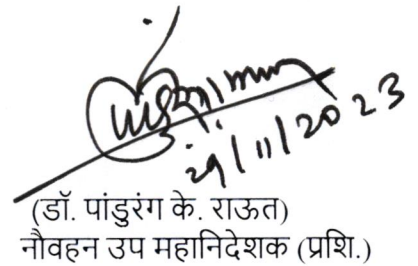 29/11/2023
(डॉ. पांडुरंग के. राऊत)
नौवहन उप महानिदेशक (प्रशि.)